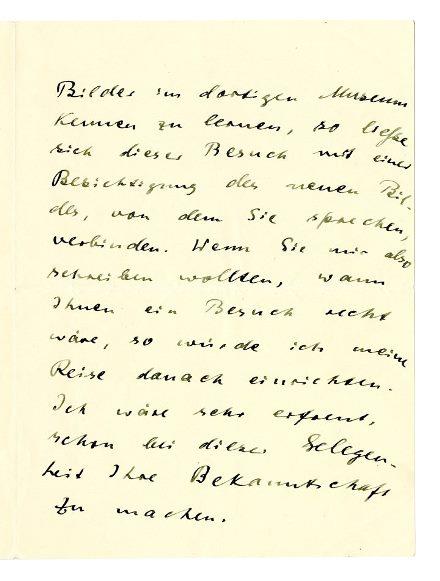 Bilder im dortigen Museum
kennen zu lernen, so ließe
sich dieser Besuch mit einer
Besichtigung des neuen Bil-
des, von dem Sie sprechen,
verbinden. Wenn Sie mir also
schreiben wollten, wann
Ihnen ein Besuch recht
wäre, so würde ich meine
Reise danach einrichten.
Ich wäre sehr erfreut,
schon bei dieser Gelegen-
heit Ihre Bekanntschaft
zu machen.